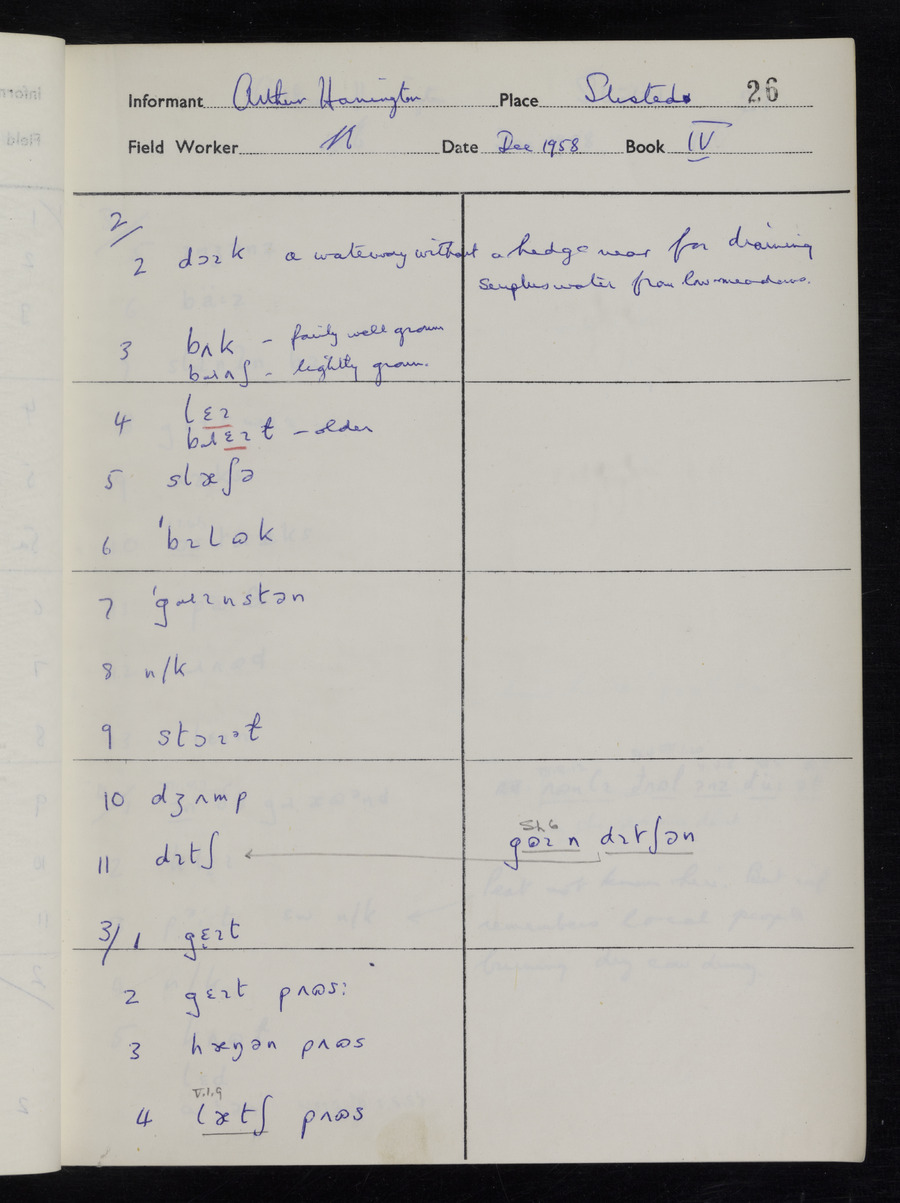 Informant Arthur Harrington Place Stisted 26
Field Worker Date Dec 1958 Book IV
2/
2 dɔɪk a waterway without a hedge near for draining
surplus water from low meadows.
3 bʌk - fairly well grown
bɹʌʃ - lightly grown.
4 lɛɪ
bɹɛɪt - older
5 slæʃə
6 'bɪlɷk
7 'gɹɪnstən
8 n/k
9 stɔɪᵊt
10 dʒʌmp
11 dɪtʃ gɷɪn dɪtʃən
Sh 6
3/ 1 gɛɪt
2 gɛɪt pʌɷs:
3 hæŋən pʌɷs
V.1.9
4 lætʃ pʌɷs